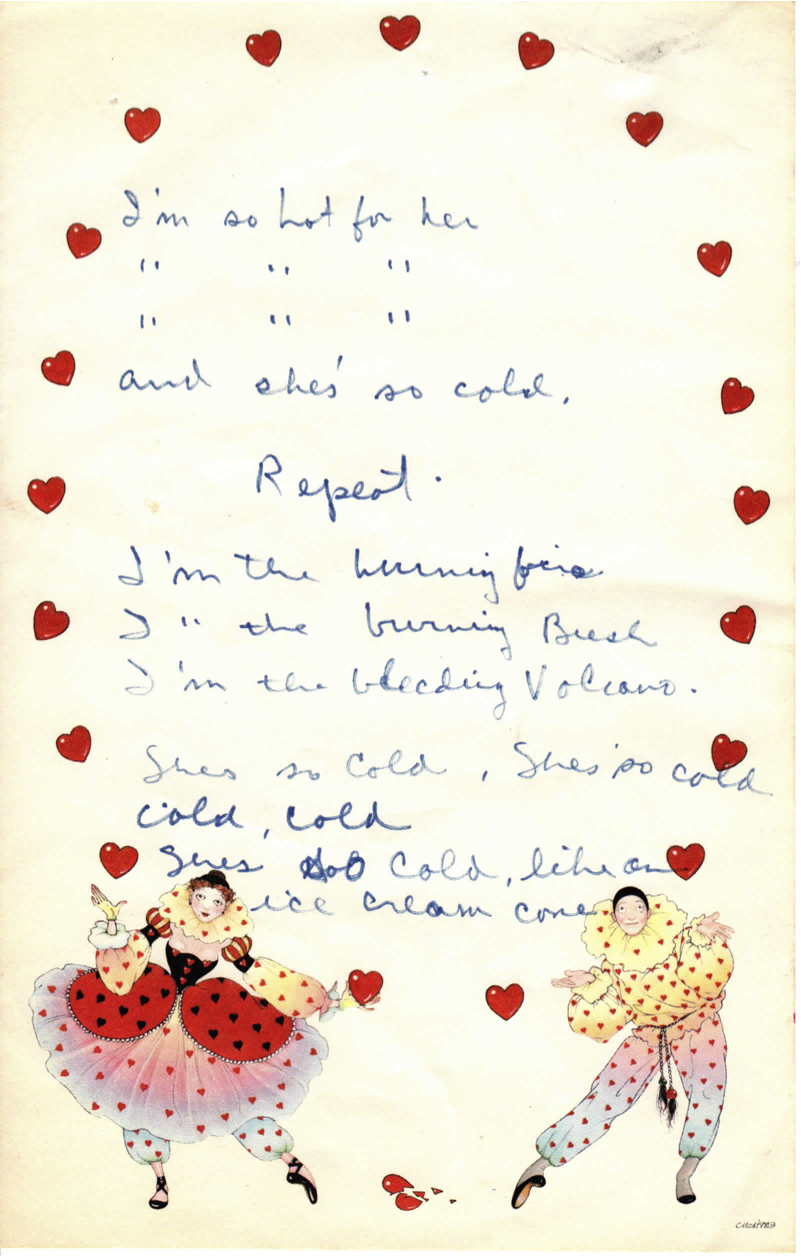 I'm so hot for her
" " "
" " "
and she's so cold.
Repeat.
I'm the burning fire
I " the burning Bush
I'm the bleeding Volcano.
Shes so cold, She's so cold
cold, cold
Shes so cold, like an
ice cream cone